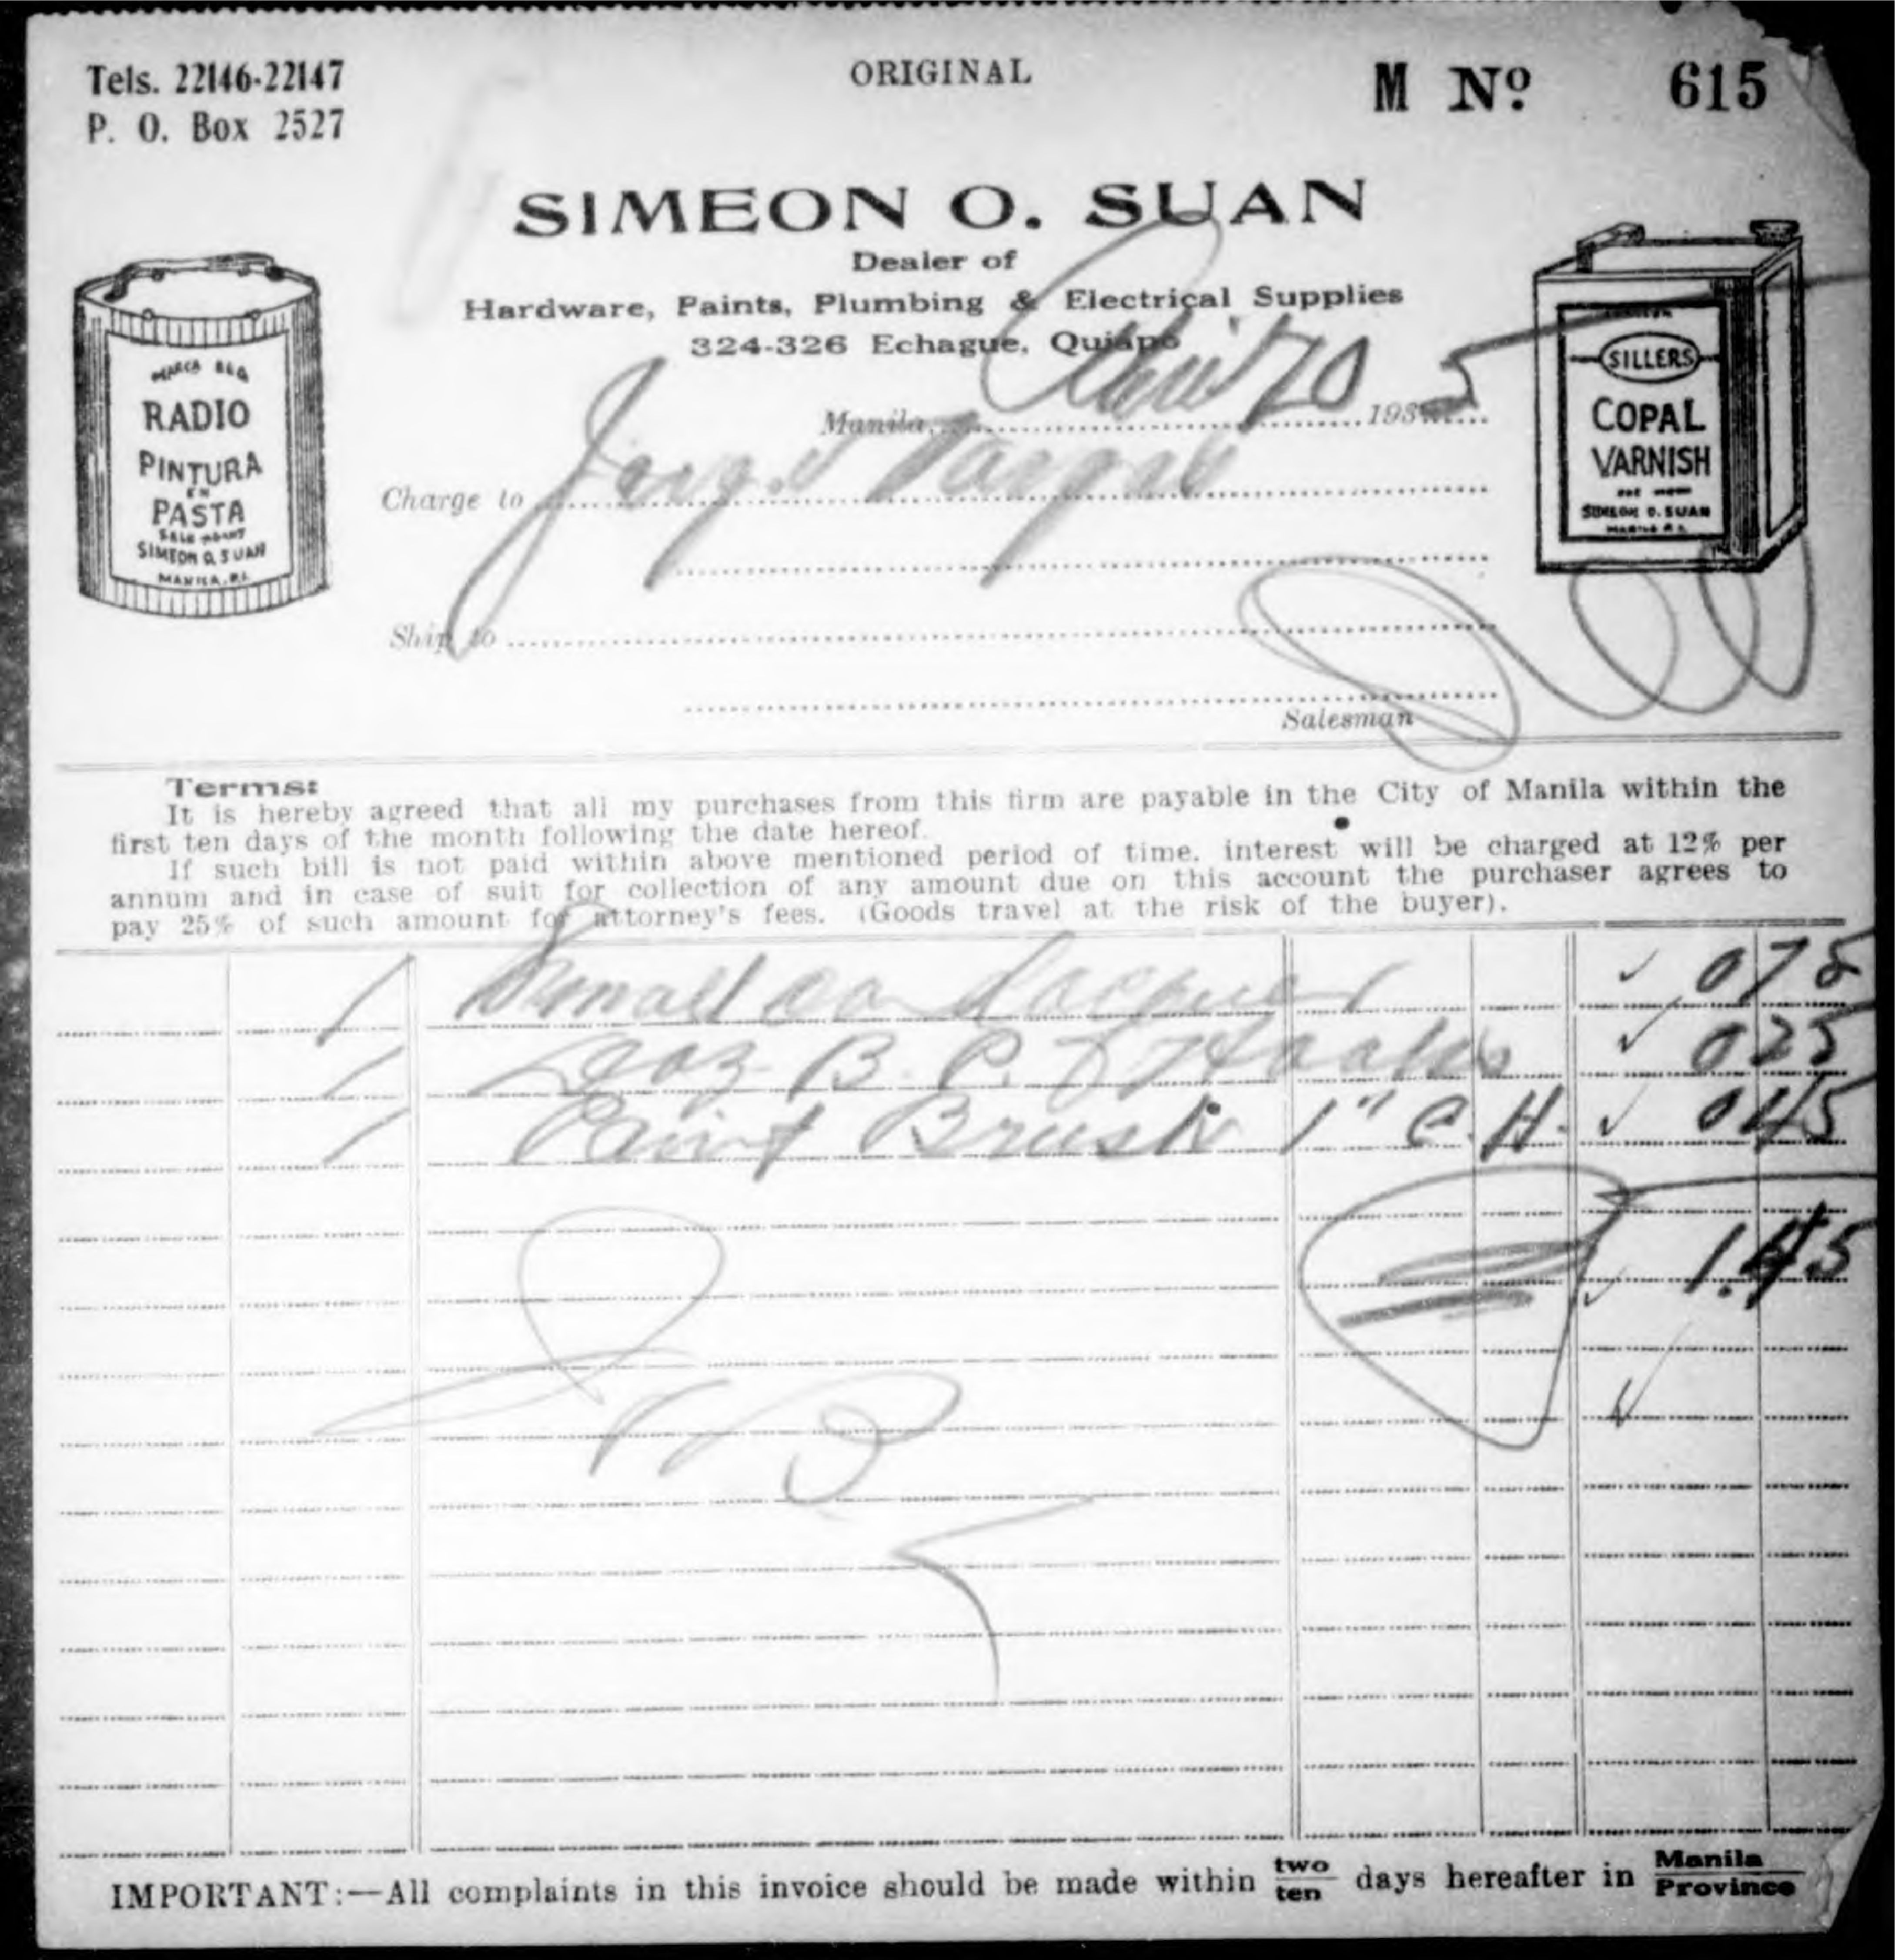 Tels. 22146-22147
P. O. Box 2527
ORIGINAL
M Nº 615
SIMEON O. SUAN
Dealer of
Hardware, Paints, Plumbing & Electrical Supplies
324-326 Echague, Quiapo
MARCA
RADIO
PINTURA
EN
PASTA
SALE AGENT
SIMEON O. SUAN
MANILA, P.I.
SILLERS
COPAL
VARNISH
SIMEON O. SUAN
MANILA P.I.
Manila, 20 1935
Charge to Jorge Vargas
Ship to
Salesman
Terms:
It is hereby agreed that all my purchases from this firm are payable in the City of Manila within the
first ten days of the month following the date hereof.
If such bill is not paid within above mentioned period of time, interest will be charged at 12% per
annum and in case of suit for collection of any amount due on this account the purchaser agrees to
pay 25% of such amount for attorney's fees. (Goods travel at the risk of the buyer).
1 Small can Lacquer 075
1 Doz B. P. Hooks 025
1 Paint Brush 1" C. H. 045
1.45
IMPORTANT:—All complaints in this invoice should be made within two/ten days hereafter in Manila/Province